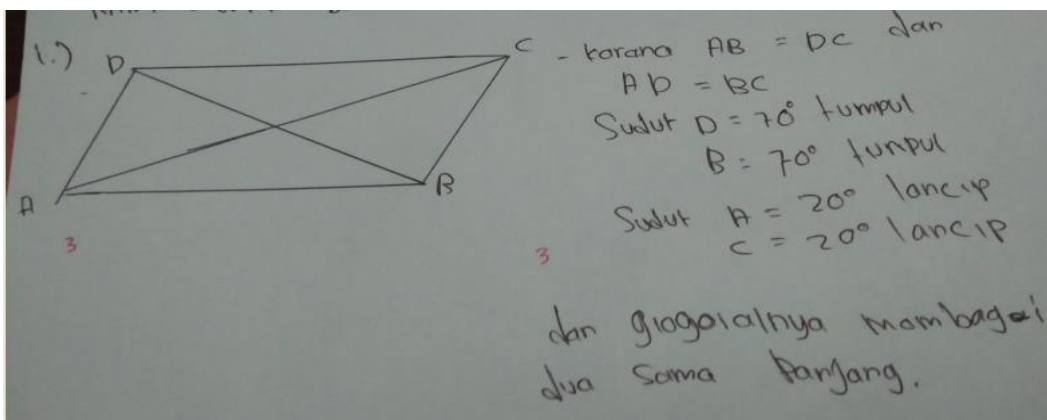 1.)
D
C
A
B
3
- Karana AB = DC dan
AD = BC
Sudut D = 70° tumpul
B = 70° tunpul
Sudut A = 20° lancip
C = 20° lancip
3
dan giogoialnya mambagai
dua sama Panjang.